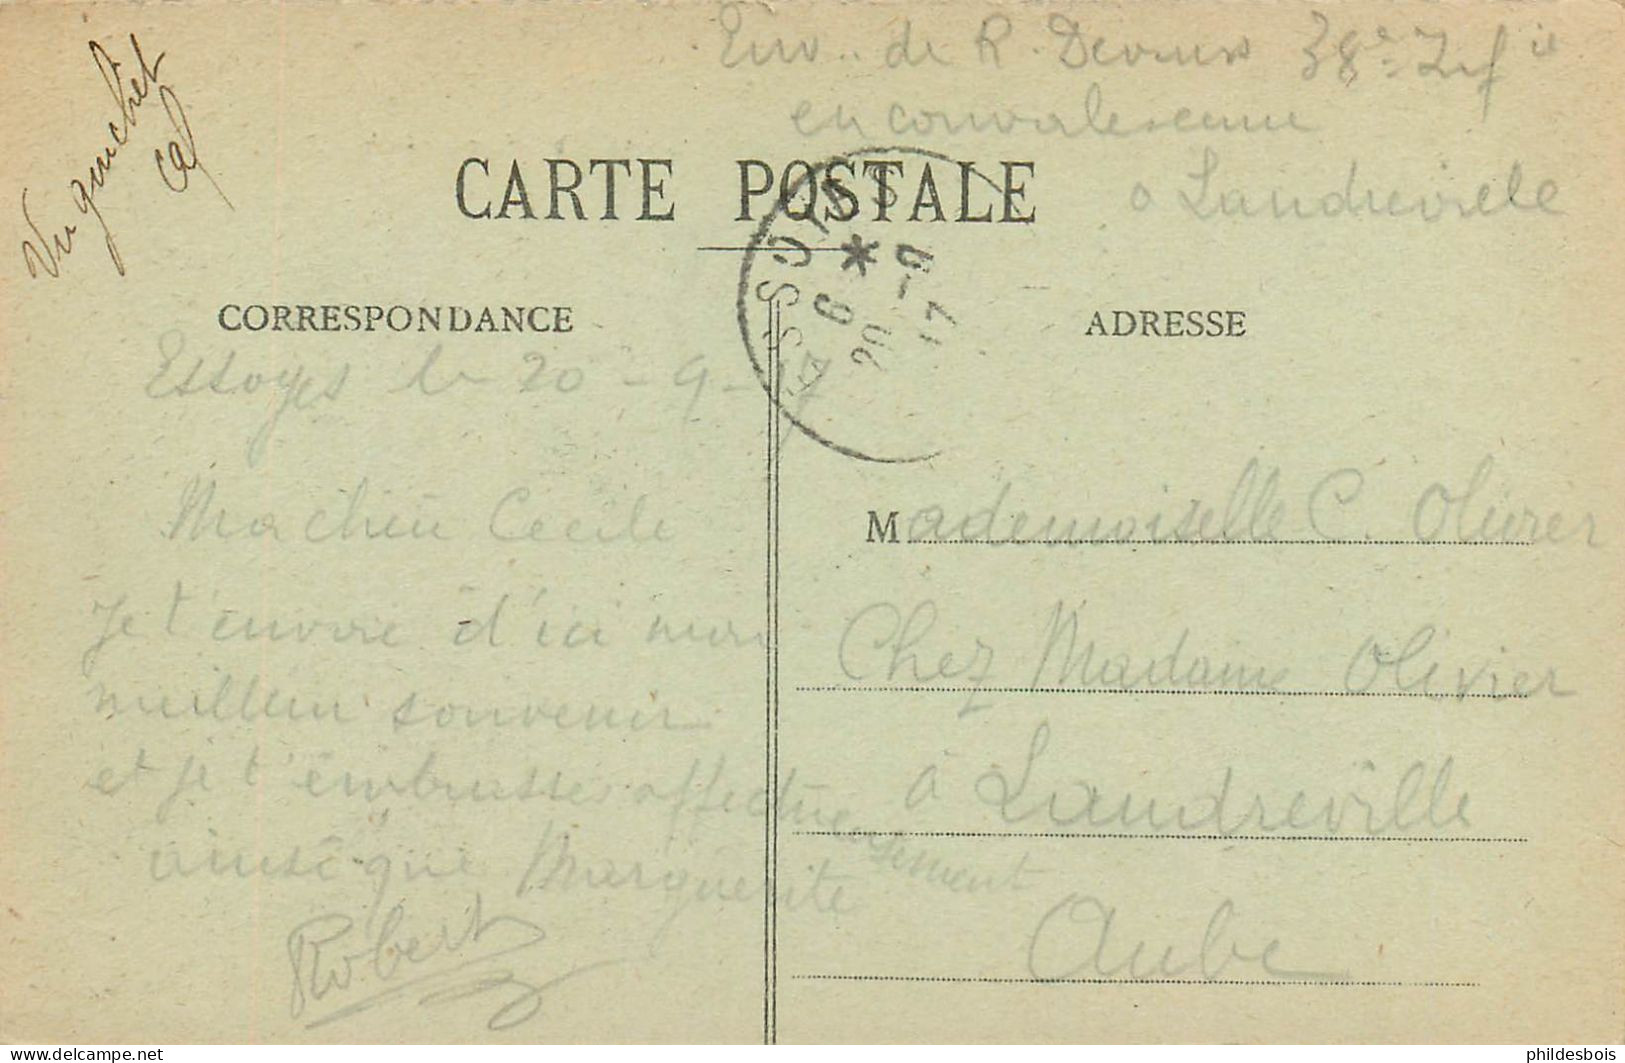 Vu guichet
Env. de R. Devaux 38e Inf ie
en convalescence
à Landreville
CARTE POSTALE
ESSOYES
6 *
20 -9
17
CORRESPONDANCE
ADRESSE
Essoyes le 20-9-17
Ma chère Cecile
Je t'envoie d'ici mon
meilleur souvenir
et je t'embrasse affectueusement
ainsi que Marguerite
Robert
Mademoiselle C. Olivier
Chez Madame Olivier
à Landreville
Aube
phildesbois